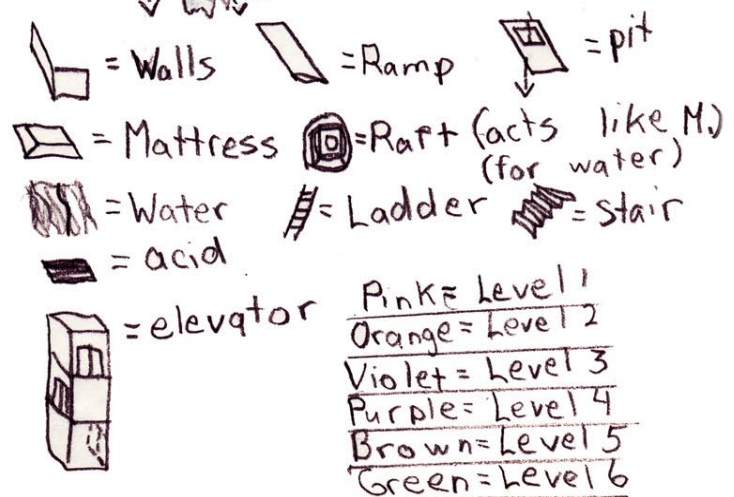 = Walls = Ramp = pit
= Mattress = Raft (acts like M.)
(for water)
= Water = Ladder = Stair
= acid
= elevator
Pink = Level 1
Orange = Level 2
Violet = Level 3
Purple = Level 4
Brown = Level 5
Green = Level 6